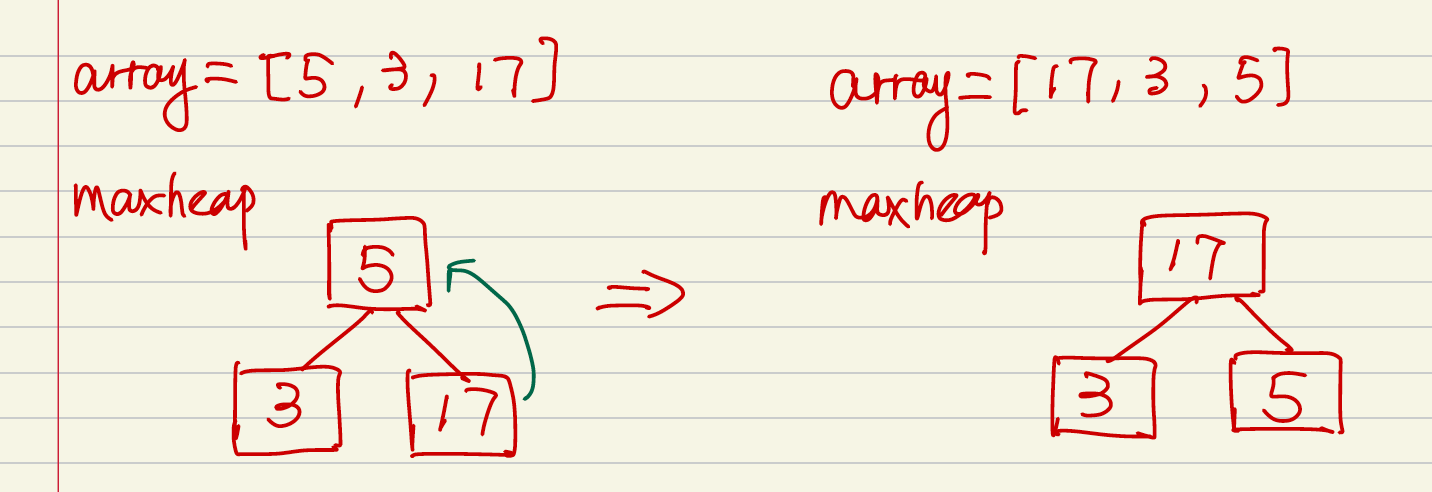 array = [5, 3, 17]
maxheap
5
3
17
array = [17, 3, 5]
maxheap
17
3
5